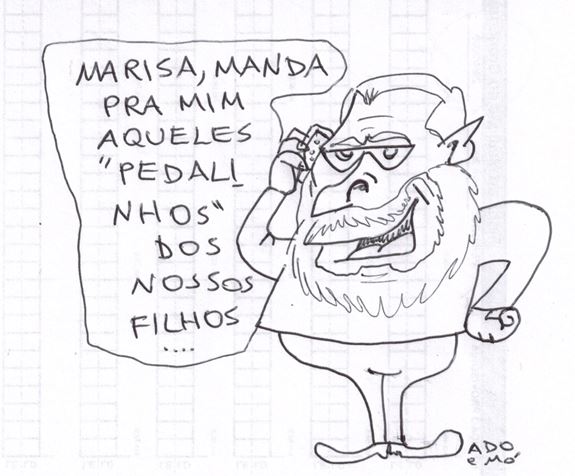 MARISA, MANDA
PRA MIM
AQUELES
"PEDALI
NHOS"
DOS
NOSSOS
FILHOS
....
ADO
e MO'